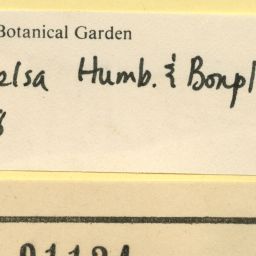 Botanical Garden
elsa Humb. & Bonpl
01124